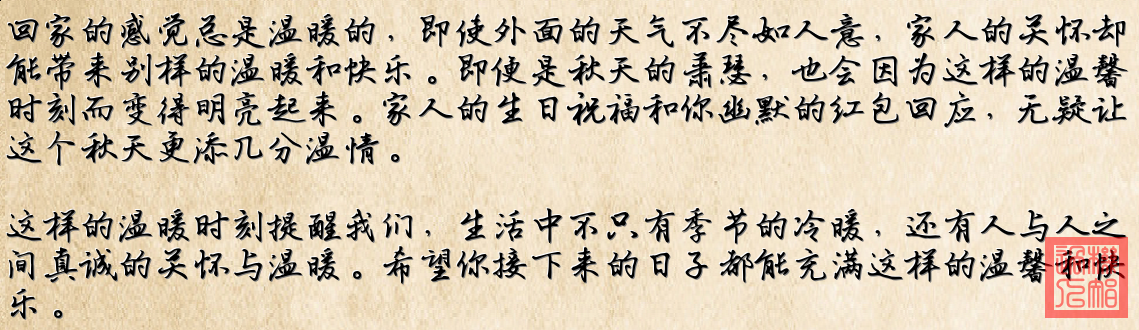 回家的感觉总是温暖的，即使外面的天气不尽如人意，家人的关怀却
能带来别样的温暖和快乐。即便是秋天的萧瑟，也会因为这样的温馨
时刻而变得明亮起来。家人的生日祝福和你幽默的红包回应，无疑让
这个秋天更添几分温情。
这样的温暖时刻提醒我们，生活中不只有季节的冷暖，还有人与人之
间真诚的关怀与温暖。希望你接下来的日子都能充满这样的温馨和快
乐。